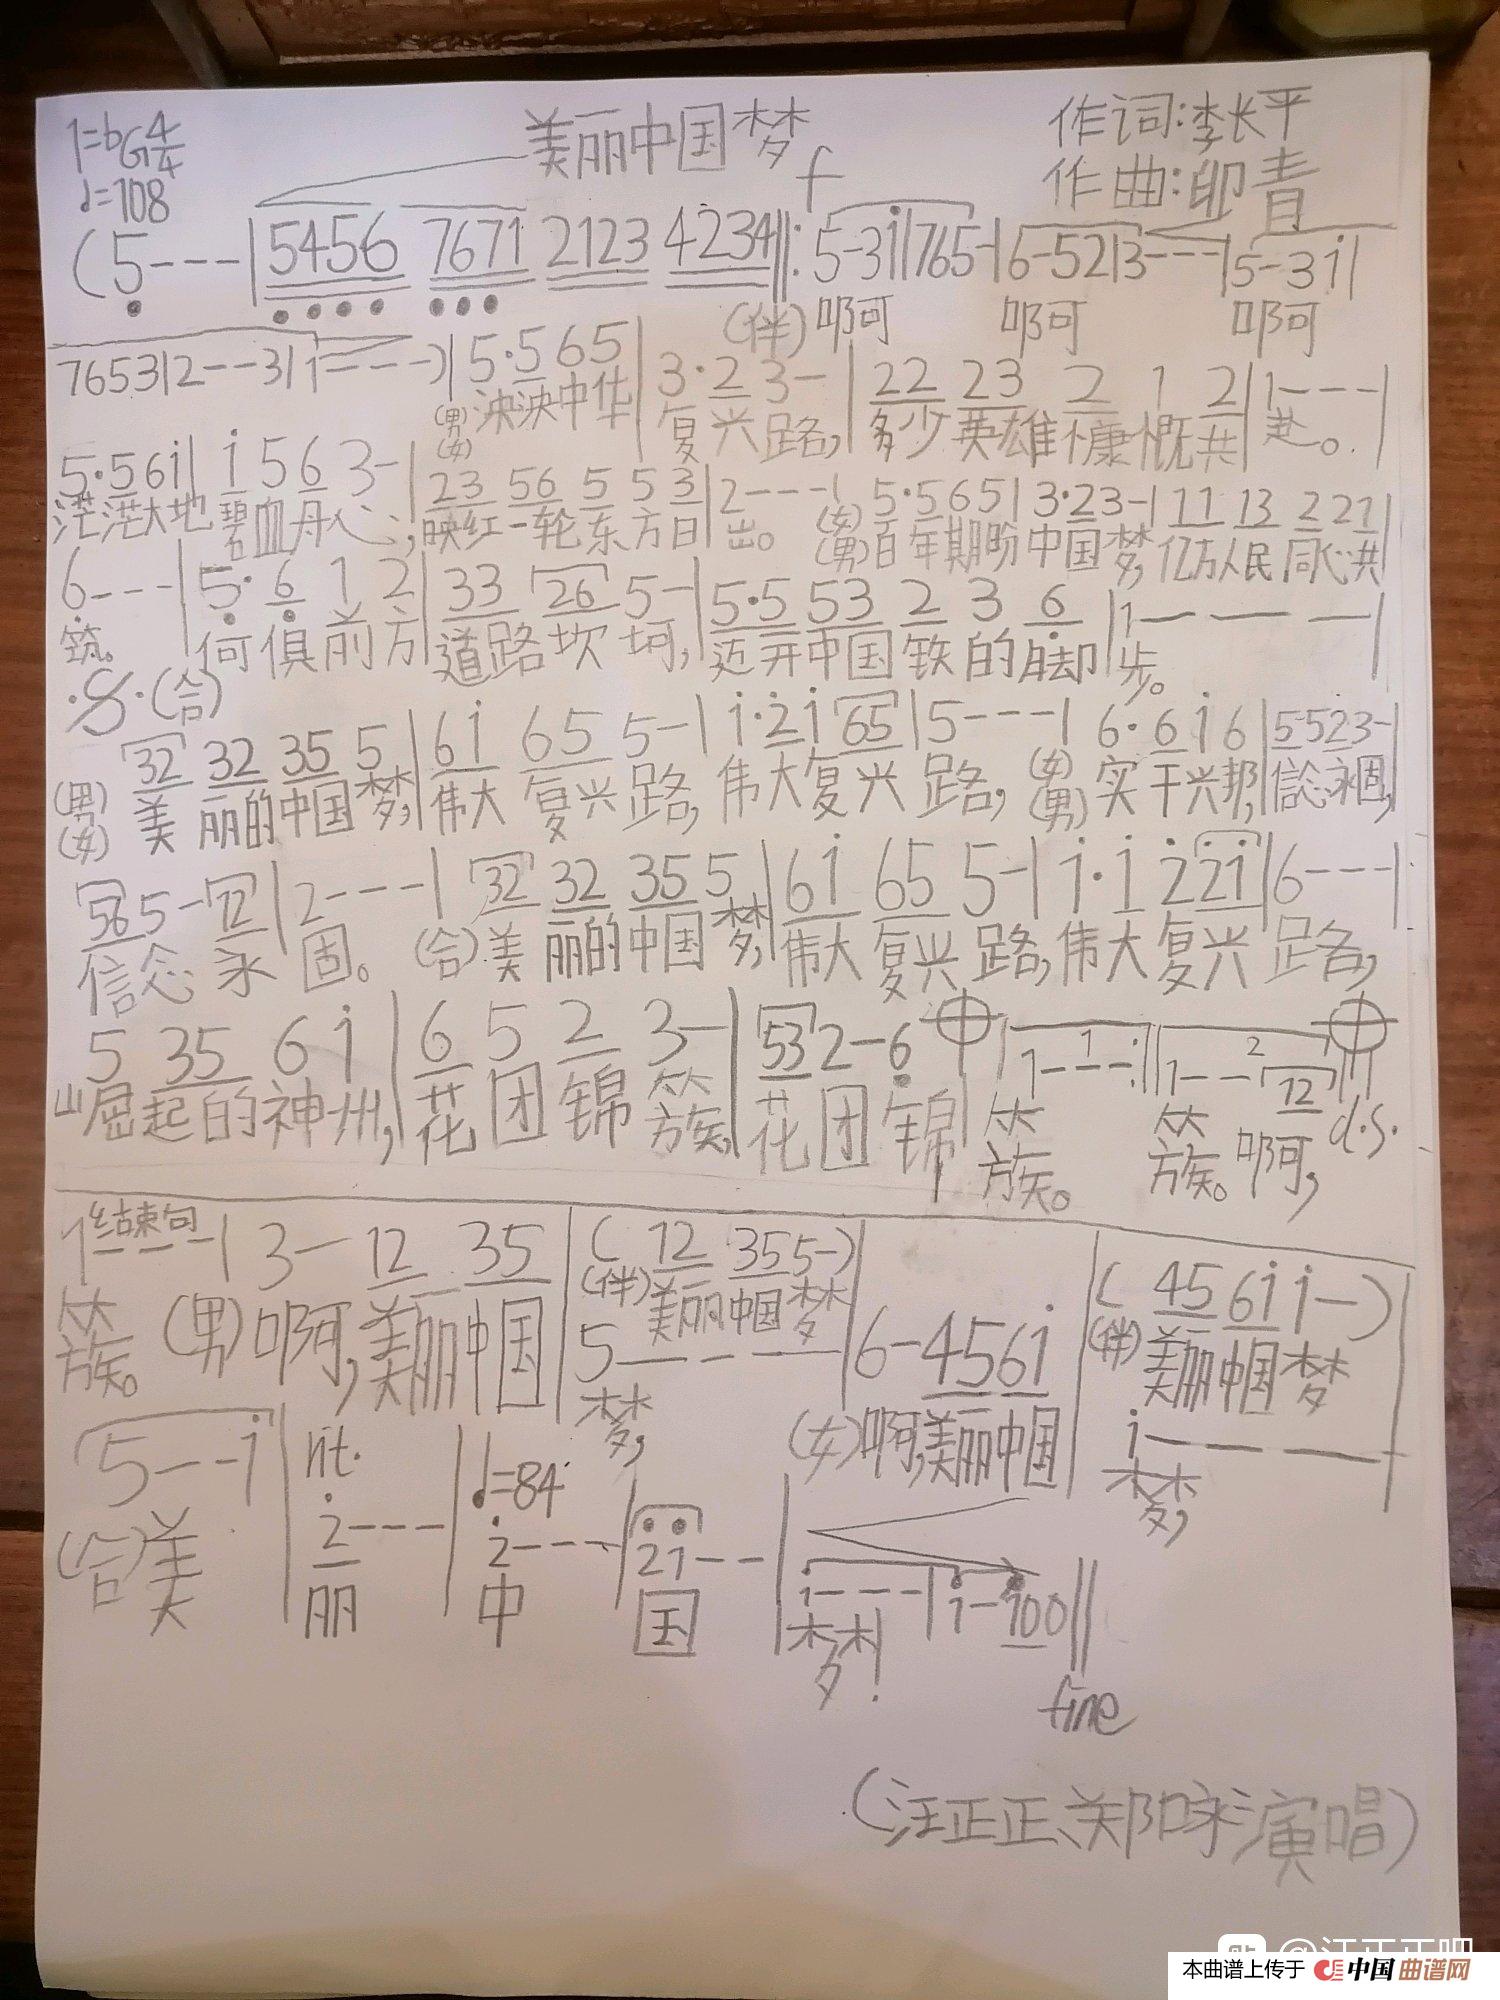 1=bG4/4
美丽中国梦
作词:李长平
♩=108
f
作曲:印青
(5---|5456 7671 2123 4234‖:5-3i|765-|6-52|3---|5-3i|
(伴)啊 啊 啊
7653|2--3|1---)|5·5 65|3·2 3-|22 23 2 1 2|1---|
(男)(女)泱泱中华 复兴路,多少英雄慷慨共赴。
5·5 6i|i 5 6 3-|23 56 5 5 3|2---|5·5 65|3·2 3-|11 13 2 21|
茫茫大地碧血丹心,映红一轮东方日出。(女)(男)百年期盼中国梦,亿万人民同心共
6---|5·6 1 2|33 26 5-|5·5 53 2 3 6|1---|
筑。何俱前方道路坎坷,迈开中国铁的脚步。
·S·(合)
32 32 35 5|6i 65 5-|i·2 i 65|5---|6·6 i 6|5·5 2 3-|
(男)(女)美丽的中国梦,伟大复兴路,伟大复兴路,(女)(男)实干兴邦,信念永固,
56 5-12|2---|32 32 35 5|6i 65 5-|i·i 2 2i|6---|
信念永固。(合)美丽的中国梦,伟大复兴路,伟大复兴路,
5 35 6 i|6 5 2 3-|53 2-6|1---:|1--12‖
1 2
崛起的神州,花团锦簇,花团锦簇。簇。啊,d.s.
结束句
1---|3-12 35|(12 35 5-)|6-45 6i|(45 6i i-)
(伴)美丽中国梦
(伴)美丽中国梦
5---
i---
簇。(男)啊,美丽中国梦,(女)啊,美丽中国梦,
rit.
♩=84
5--i|2---|2---|2i--|i---|i-i00‖
(合)美丽中国梦!
fine
(汪正正、郑咏演唱)
@汪正正吧
本曲谱上传于 中国曲谱网